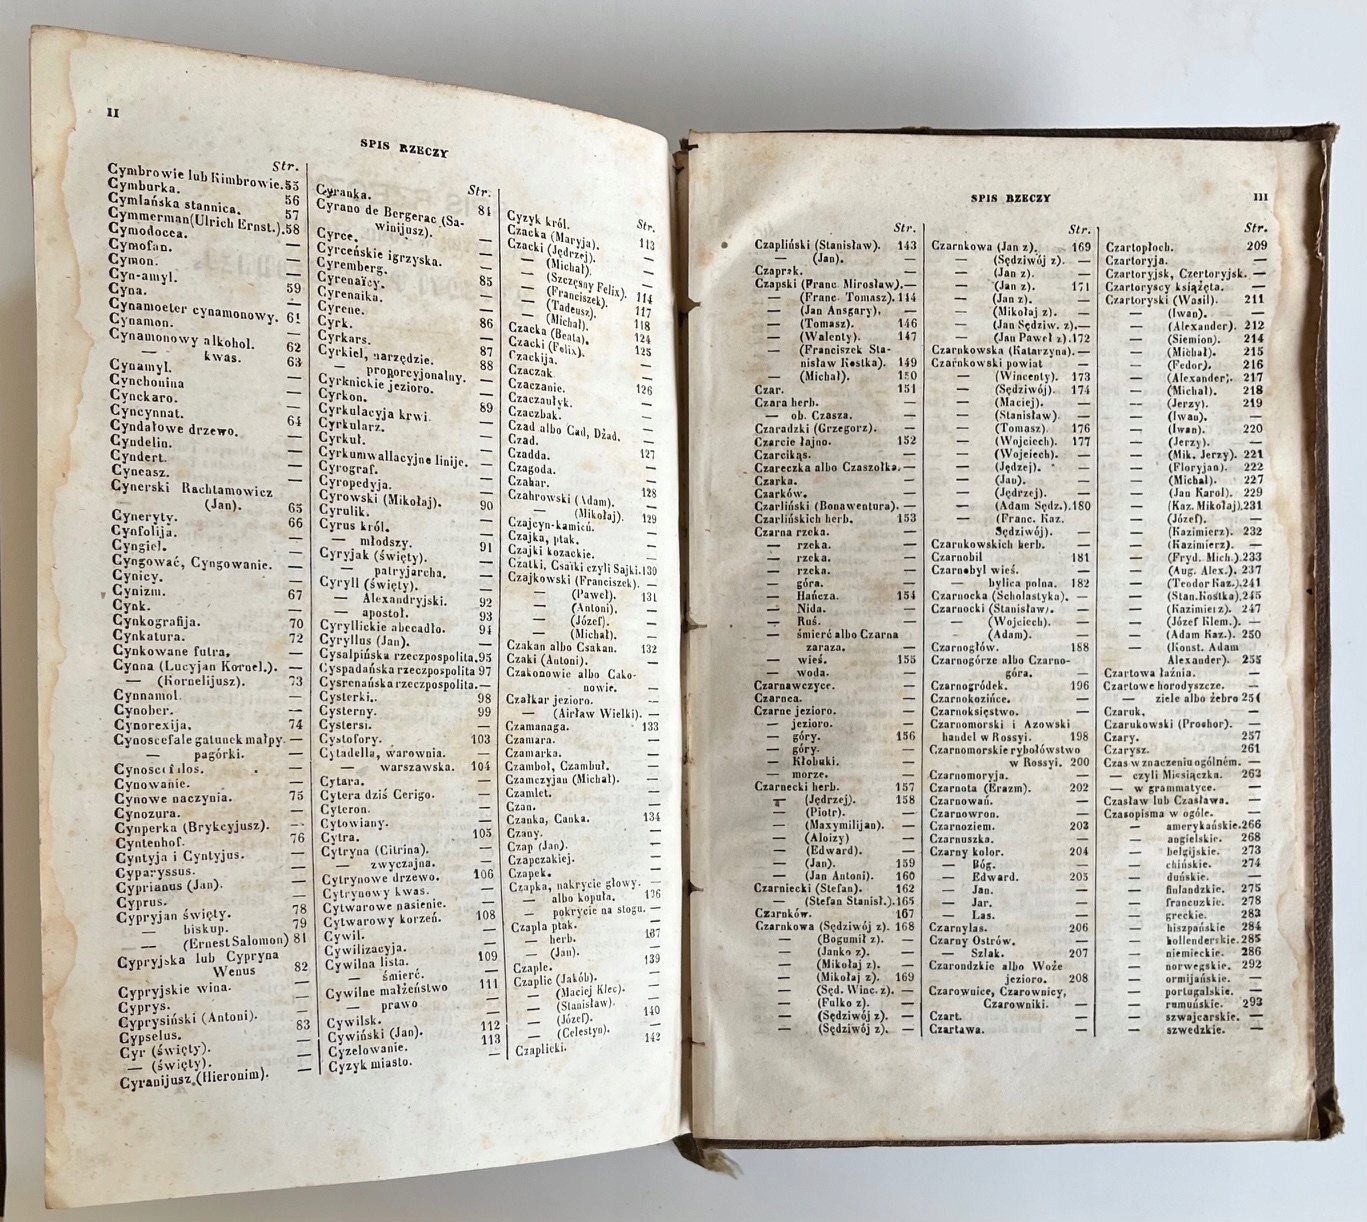 II
SPIS RZECZY
Str.
Cymbrowie lub Kimbrowie. 55
Cymburka. 56
Cymlańska stannica. 57
Cymmerman(Ulrich Ernst.).58
Cymodocea. —
Cymofan. —
Cymon. —
Cyn-amyl. —
Cyna. 59
Cynamoeter cynamonowy. 61
Cynamon. —
Cynamonowy alkohol. 62
— kwas. 63
Cynamyl. —
Cynchonina —
Cynckaro. —
Cyncynnat. —
Cyndałowe drzewo. 64
Cyndelin. —
Cyndert. —
Cyneasz. —
Cynerski Rachtamowicz
(Jan). 65
Cyneryty. 66
Cynfolija. —
Cyngiel. —
Cyngować, Cyngowanie. —
Cynicy. —
Cynizm. 67
Cynk. —
Cynkografija. 70
Cynkatura. 72
Cynkowane futra. —
Cynna (Lucyjan Kornel.). —
— (Kornelijusz). 73
Cynnamol. —
Cynober. —
Cynorexija. 74
Cynoscefale gatunek małpy. —
— pagórki. —
Cynowanie. —
Cynowe naczynia. 75
Cynozura. —
Cynperka (Brykcyjusz). —
Cyntenhof. 76
Cyntyja i Cyntyjus. —
Cyparyssus. —
Cyprianus (Jan). —
Cyprus. —
Cypryjan święty. 78
— biskup. 79
— (Ernest Salomon) 81
Cypryjska lub Cypryna
Wenus 82
Cypryjskie wina. —
Cyprys. —
Cyprysiński (Antoni). —
Cypselus. 83
Cyr (święty). —
— (święty). —
Cyranijusz (Hieronim). —
Str.
Cyranka. 84
Cyrano de Bergerac (Sa-
winijusz). —
Cyrce. —
Cyrceńskie igrzyska. —
Cyremberg. —
Cyrenaïcy. 85
Cyrenaika. —
Cyrene. —
Cyrk. 86
Cyrkars. —
Cyrkiel, narzędzie. 87
— proporcyjonalny. 88
Cyrknickie jezioro. —
Cyrkon. —
Cyrkulacyja krwi. 89
Cyrkularz. —
Cyrkuł. —
Cyrkumwallacyjne linije. —
Cyrograf. —
Cyropedyja. —
Cyrowski (Mikołaj). 90
Cyrulik. —
Cyrus król. —
— młodszy. 91
Cyryjak (święty). —
— patryjarcha. —
Cyryll (święty). —
— Alexandryjski. 92
— apostoł. 93
Cyryllickie abecadło. 94
Cyryllus (Jan). —
Cysalpińska rzeczpospolita. 95
Cyspadańska rzeczpospolita 97
Cysrenańska rzeczpospolita. —
Cysterki. 98
Cysterny. 99
Cystersi. —
Cystofory. 103
Cytadella, warownia. —
— warszawska. 104
Cytara. —
Cytera dziś Cerigo. —
Cyteron. —
Cytowiany. —
Cytra. 105
Cytryna (Citrina). —
— zwyczajna. —
Cytrynowe drzewo. 106
Cytrynowy kwas. —
Cytwarowe nasienie. —
Cytwarowy korzeń. 108
Cywil. —
Cywilizacyja. —
Cywilna lista. 109
— śmierć. —
Cywilne małżeństwo 111
— prawo —
Cywilsk. —
Cywiński (Jan). 112
Cyzelowanie. 113
Cyzyk miasto. —
Str.
Cyzyk król. 113
Czacka (Maryja). —
Czacki (Jędrzej). —
— (Michał). —
— (Szczęsny Felix). —
— (Franciszek). 114
— (Tadeusz). 117
— (Michał). 118
Czacka (Beata). 124
Czacki (Felix). 125
Czackija. —
Czaczak. —
Czaczanie. 126
Czaczaułyk. —
Czaczbak. —
Czad albo Cad, Dżad. —
Czad. —
Czadda. 127
Czagoda. —
Czahar. —
Czahrowski (Adam). 128
— (Mikołaj). 129
Czajcyn-kamień. —
Czajka, ptak. —
Czajki kozackie. —
Czatki, Csaïki czyli Sajki. 130
Czajkowski (Franciszek). —
— (Paweł). 131
— (Antoni). —
— (Józef). —
— (Michał). —
Czakan albo Csakan. 132
Czaki (Antoni). —
Czakonowie albo Cako-
nowie. —
Czałkar jezioro. —
(Airław Wielki). —
Czamanaga. 133
Czamara. —
Czamarka. —
Czamboł, Czambuł. —
Czamczyjan (Michał). —
Czamlet. —
Czan. —
Czanka, Canka. 134
Czany. —
Czap (Jan). —
Czapczakiej. —
Czapek. —
Czapka, nakrycie głowy. —
— albo kopuła. 136
— pokrycie na stogu. —
Czapla ptak. —
— herb. 137
— (Jan). —
Czaple. 139
Czaplic (Jakób). —
— (Maciej Klec). —
— (Stanisław). —
— (Józef). 140
— (Celestyn). —
Czaplicki. 142
SPIS RZECZY
III
Str.
Czapliński (Stanisław). 143
— (Jan). —
Czaprak. —
Czapski (Franc. Mirosław). —
— (Franc. Tomasz). 144
— (Jan Ansgary). —
— (Tomasz). 146
— (Walenty). 147
— (Franciszek Sta-
nisław Kostka). 149
— (Michał). 150
Czar. 151
Czara herb. —
— ob. Czasza. —
Czaradzki (Grzegorz). —
Czarcie łajno. 152
Czarcikąs. —
Czareczka albo Czaszołka. —
Czarka. —
Czarków. —
Czarliński (Bonawentura). —
Czarlińskich herb. 153
Czarna rzeka. —
— rzeka. —
— rzeka. —
— rzeka. —
— góra. —
— Hańcza. 154
— Nida. —
— Ruś. —
— śmierć albo Czarna
zaraza. —
— wieś. 155
— woda. —
Czarnawczyce. —
Czarnca. —
Czarne jezioro. —
— jezioro. —
— góry. 156
— góry. —
— Kłobuki. —
— morze. —
Czarnecki herb. 157
— (Jędrzej). 158
— (Piotr). —
— (Maxymilijan). —
— (Aloizy) —
— (Edward). —
— (Jan). 159
— (Jan Antoni). 160
Czarniecki (Stefan). 162
— (Stefan Stanisł.). 165
Czarnków. 167
Czarnkowa (Sędziwój z). 168
— (Bogumił z). —
— (Janko z). —
— (Mikołaj z). —
— (Mikołaj z). 169
— (Sęd. Winc. z). —
— (Fulko z). —
— (Sędziwój z). —
— (Sędziwój z). —
Str.
Czarnkowa (Jan z). 169
— (Sędziwój z). —
— (Jan z). —
— (Jan z). 171
— (Jan z). —
— (Mikołaj z). —
— (Jan Sędziw. z). —
— (Jan Paweł z). 172
Czarnkowska (Katarzyna). —
Czarnkowski powiat —
— (Wincenty). 173
— (Sędziwój). 174
— (Maciej). —
— (Stanisław). —
— (Tomasz). 176
— (Wojciech). 177
— (Wojciech). —
— (Jędzej). —
— (Jan). —
— (Jędrzej). —
— (Adam Sędz.). 180
— (Franc. Kaz.
Sędziwój). —
Czarnkowskich herb. —
Czarnobil 181
Czarnobyl wieś. —
— bylica polna. 182
Czarnocka (Scholastyka). —
Czarnocki (Stanisław). —
— (Wojciech). —
— (Adam). —
Czarnogłów. 188
Czarnogórze albo Czarno-
góra. —
Czarnogródek. 196
Czarnokozińce. —
Czarnoksięstwo. —
Czarnomorski i Azowski
handel w Rossyi. 198
Czarnomorskie rybołówstwo
w Rossyi. 200
Czarnomoryja. —
Czarnota (Erazm). 202
Czarnowań. —
Czarnowron. —
Czarnoziem. 203
Czarnuszka. —
Czarny kolor. 204
— Bóg. —
— Edward. 205
— Jan. —
— Jar. —
— Las. —
Czarnylas. 206
Czarny Ostrów. —
— Szlak. 207
Czarondzkie albo Woże
jezioro. 208
Czarownice, Czarownicy,
Czarowniki. —
Czart. —
Czartawa. —
Str.
Czartopłoch. 209
Czartoryja. —
Czartoryjsk, Czertoryjsk. —
Czartoryscy książęta. —
Czartoryski (Wasil). 211
— (Iwan). —
— (Alexander). 212
— (Siemion). 214
— (Michał). 215
— (Fedor). 216
— (Alexander). 217
— (Michał). 218
— (Jerzy). 219
— (Iwan). —
— (Iwan). 220
— (Jerzy). —
— (Mik. Jerzy). 221
— (Floryjan). 222
— (Michał). 227
— (Jan Karol). 229
— (Kaz. Mikołaj). 231
— (Józef). —
— (Kazimierz). 232
— (Kazimierz). —
— (Fryd. Mich.). 233
— (Aug. Alex.). 237
— (Teodor Kaz.). 241
— (Stan. Kostka). 245
— (Kazimierz). 247
— (Józef Klem.). —
— (Adam Kaz.). 250
— (Konst. Adam
Alexander). 255
Czartowa łaźnia. —
Czartowe horodyszcze. —
— ziele albo żebro 25
Czaruk. —
Czarukowski (Prochor). —
Czary. 257
Czarysz. 261
Czas w znaczeniu ogólném. —
— czyli Miesiączka. 263
— w grammatyce. —
Czasław lub Czasława. —
Czasopisma w ogóle. —
— amerykańskie. 266
— angielskie. 268
— belgijskie. 273
— chińskie. 274
— duńskie. —
— finlandzkie. 275
— francuzkie. 278
— greckie. 283
— hiszpańskie 284
— hollenderskie. 285
— niemieckie. 286
— norwegskie. 292
— ormijańskie. —
— portugalskie. —
— rumuńskie. 293
— szwajcarskie. —
— szwedzkie. —